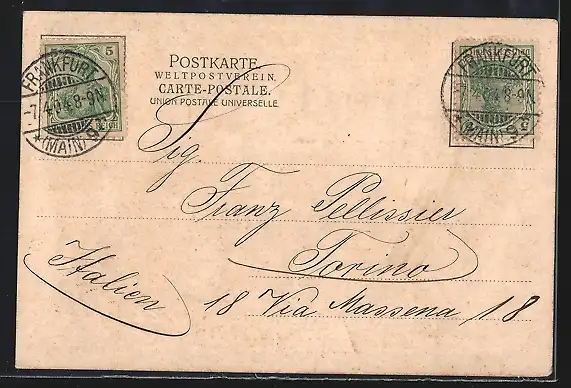 POSTKARTE
WELTPOSTVEREIN.
CARTE-POSTALE.
UNION POSTALE UNIVERSELLE
5
REICH
FRANKFURT
7.4.04.8-9N.
* (MAIN) 9
FRANKFURT
8-9N
* (MAIN) 9
Sig.
Franz Pellissier
Torino
Italien
18 Via Massena 18